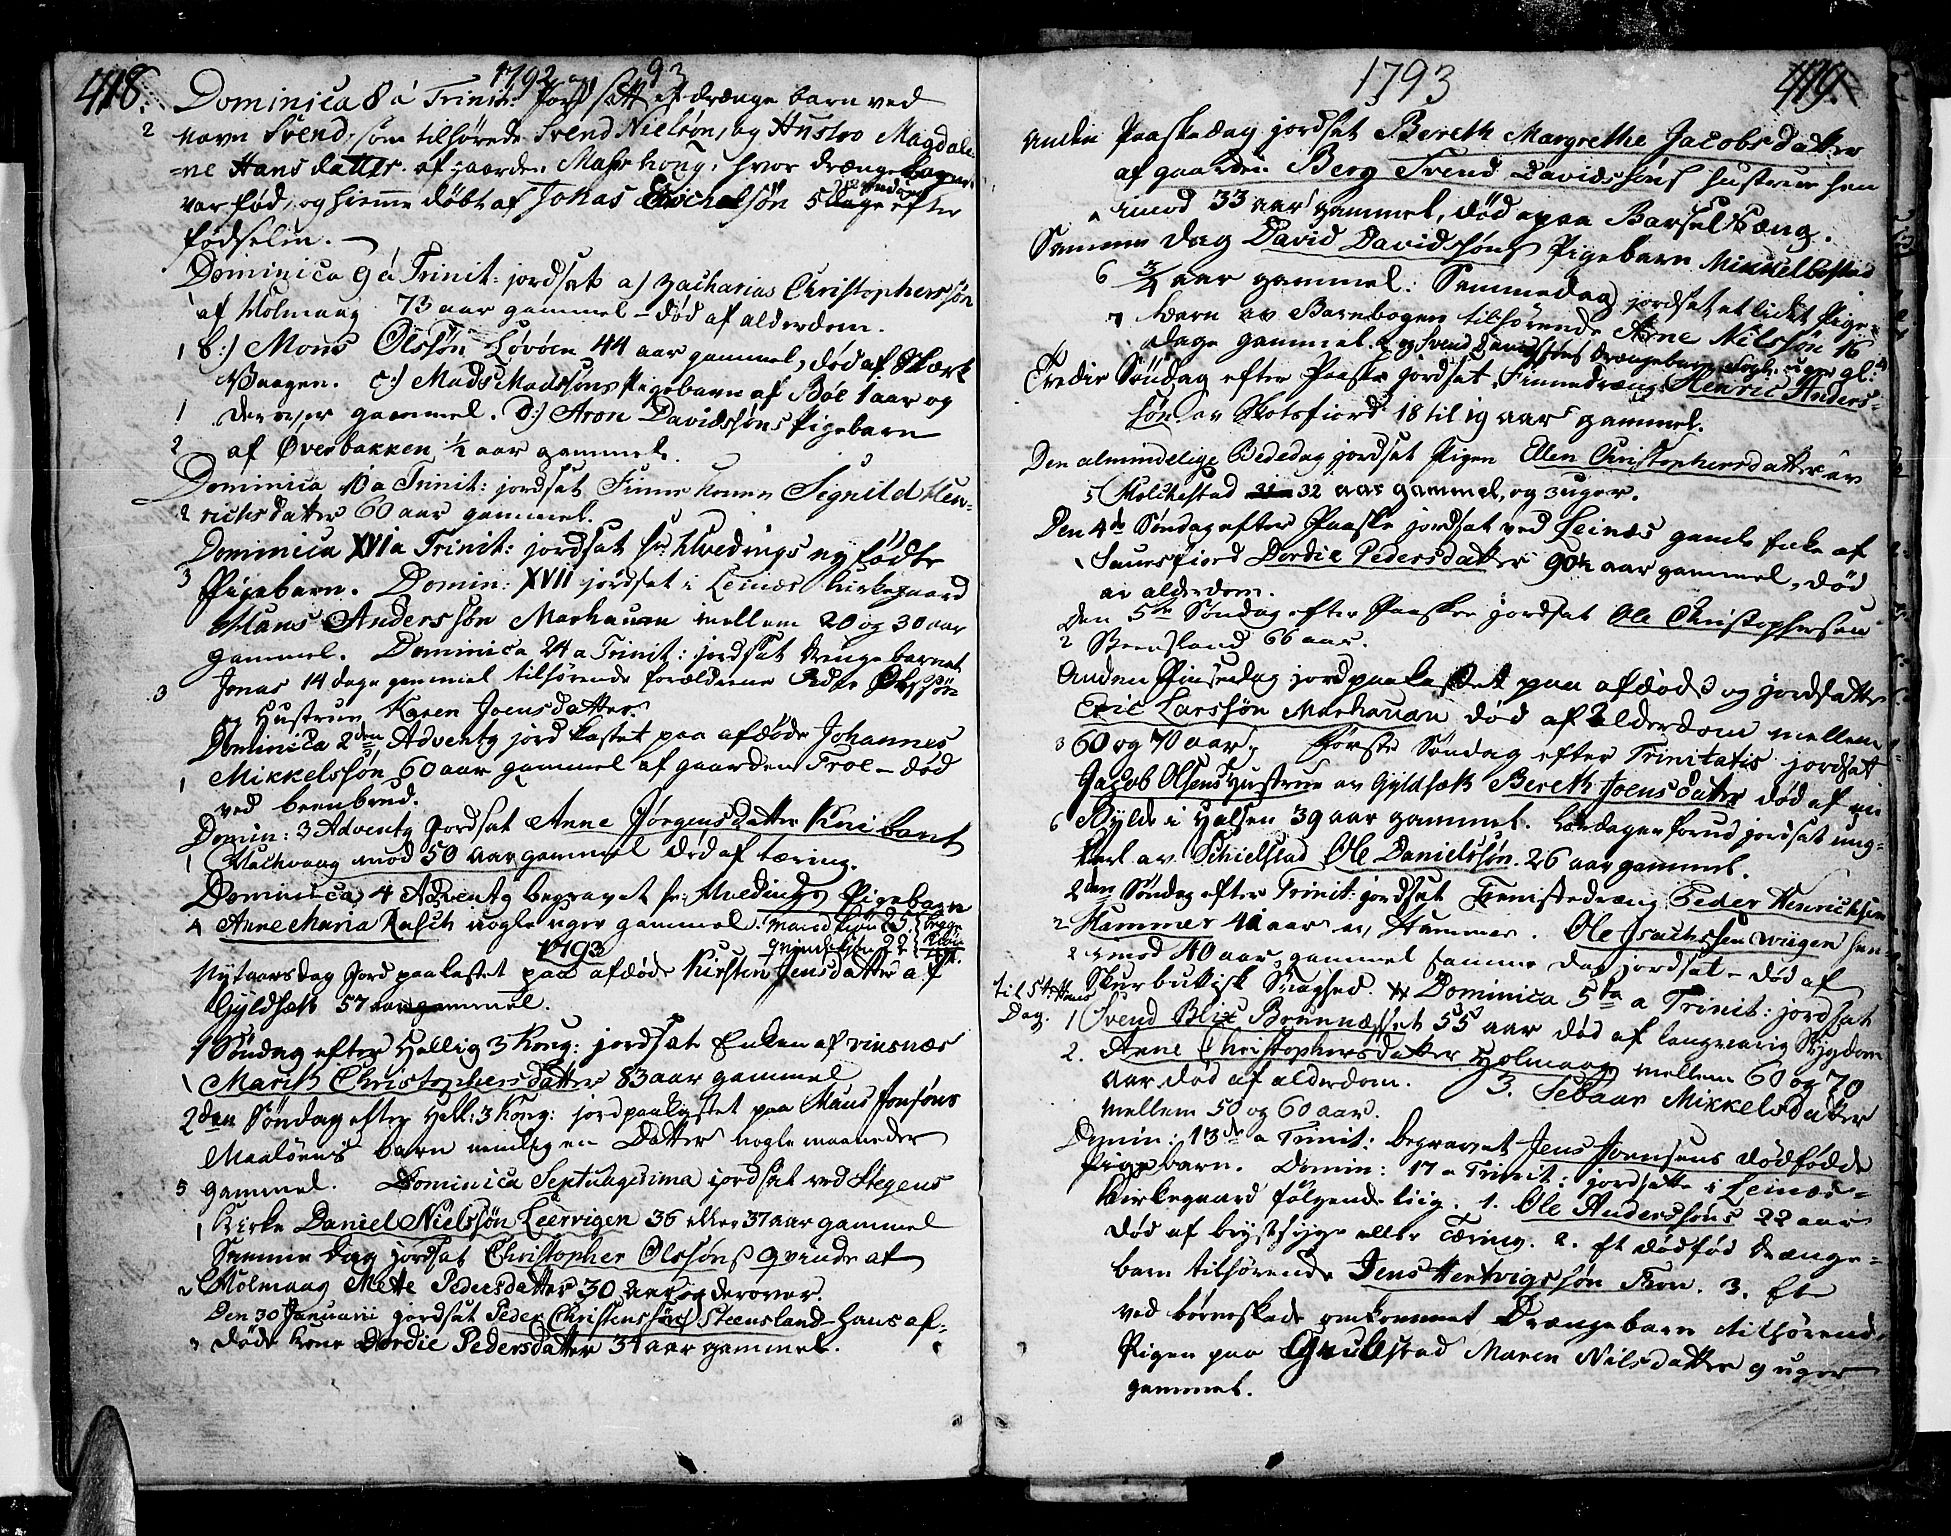 418.
1792 og 93
Dominica 8 a Trinit: Jordsatt et drænge barn ved
2
navn Svend, som tilhørede Svend Nielsøn, og Hustro Magdale
=ne Hansdatter af gaarden hvor drænge
var fød, og hiemme døbt af Johas 5 dage efter
fødselen. —
Dominica 9 a Trinit: jordsat a) Zacharias Christopherssøn
1 af Holmaag 73 aar gammel - død af alderdom.
1 b:) Mons Olssøn Løvøen 44 aar gammel, død af
Vaagen. c:) Mads Madssøns Pigebarn af Böe 1 aar og
1 derover gammel. D:) Aron Davidssøns Pigebarn
2 af Øverbakken ½ aar gammel.
Dominica 10 a Trinit: jordsat Finne konen Segnild Hen-
2 richsdatter 60 aar gammel.
Dominica XVI a Trinit: jordsat hr: Hvedings nyfødte
3 Pigebarn. Domin: XVII jordsat i Leinæs Kirkegaard
Hans Anderssøn Marhauen mellem 20 og 30 aar
gammel. Dominica 24 a Trinit: jordsat drengebarnet
3 Jonas 14 dage gammel tilhørende forældrene Peder Olssøn
og Hustrue Karen Joensdatter.
Dominica 2den Adventq jord kastet paa afdøde Johannes
1 Mikkelssøn 60 aar gammel af gaarden Troe - død
ved beenbrud.
Domin: 3 Adventq Jordsat Anne Jørgensdatter
1 mod 50 aar gammel død af tæring.
Dominica 4 Adventq begravet hr: Hvedings Pigebarn
4 Anne Maria Rasch nogle uger gammel. Mandkiøn 25
1793 Qvindekiøn 22
Nytaarsdag Jord paakastet paa afdøde Kirsten Jensdatter af
Gyldsæk 57 aar gammel.
1 Søndag efter Hellig 3 Kong: jordsat Enken af
1 Marith Christophersdatter 83 aar gammel
2den Søndag efter Hell: 3 Kong: jordpaakastet paa Hans Jonsøns
Maaløens barn nemlig en Datter nogle maaneder
5 gammel. Dominica Septuagesima jordsat ved Stegens
1 Kirke Daniel Nielssøn Leervigen 36 eller 37 aar gammel
Samme dag jordsat Christopher Olssøns qvinde af
2 Holmaag Mette Pedersdatter 30 aar og derover.
Den 30 Januarii jordsat Peder Christenssøns Steensland hans af-
3 døde kone Dordie Pedersdatter 31 aar gammel.
1793
419.
Anden Paaskedag jordsat Bereth Margrethe Jacobsdatter
af gaarden Berg Svend Davidssøns hustrue hen
imod 33 aar gammel, død paa Barselseng.
Samme dag David Davidssøns Pigebarn Mikkelbostad
6 3/4 aar gammel: Sammedag jordsat et lidet Pige-
barn av Barnbogen tilhørende Arne Nilssøn 16
dage gammel. og Svend Davidssøns drængebarn nogle uger gl:
Tredie Søndag efter Paaske jordsat Finnedræng Henric Anders-
søn av Skotsfiord 18 til 19 aar gammel.
Den almindelige Bededag jordsat Pigen Ellen Christophersdatter av
5 Holkestad 32 aar gammel, og 3 uger.
Den 4de Søndag efter Paaske jordsat ved Leinæs gamle Enke af
1 Dordie Pedersdatter 90 aar gammel, død
av alderdom.
Den 5te Søndag efter Paaske jordsat Ole Christophersen
2 Steensland 66 aar.
Anden Pinsedag jordpaakastet paa afdøde og jordsatte
Eric Larssøn Marhauen død af alderdom mellem
3 60 og 70 aar. Første Søndag efter Trinitatis jordsat
Jacob Olsens Hustrue av Gyldsæk Bereth Joensdatter død af en
6 Bylde i Halsen 39 aar gammel. Løverdagen forud jordsat ung-
karl av Schielstad Ole Danielssøn 26 aar gammel.
2den Søndag efter Trinit: jordsat Tienistedræng Peder Henrichsen
2 Hammer 41 aar av Hammer. Ole Isachssen Wiigen hen-
2 imod 40 aar gammel samme dag jordsat - død af
Skiørbuttisk Svaghed. Dominica 5ta a Trinit: jordsat
til St: Hans
Dag.
1 Svend Blix Brennæsset 55 aar død af langvarig Sygdom
2. Anne Christophersdatter Holmaag mellem 60 og 70
aar død af alderdom. 3. Mikkelsdatter
mellem 50 og 60 aar.
Domin: 13de a Trinit: begravet Jens Joensens dødfødde
Pigebarn. Domin: 17 a Trinit: jordsatte i Leinæs
Kirkegaard følgende liig. 1. Ole Anderssøns 22 aar
død af brystsyge eller Tæring. 2. Et dødfød drænge-
barn tilhørende Jens Hertvigssøn 3. Et
ved børneskade omkommet Drængebarn tilhørende
Pigen paa Maren Nilsdatter 9 uger
gammel.